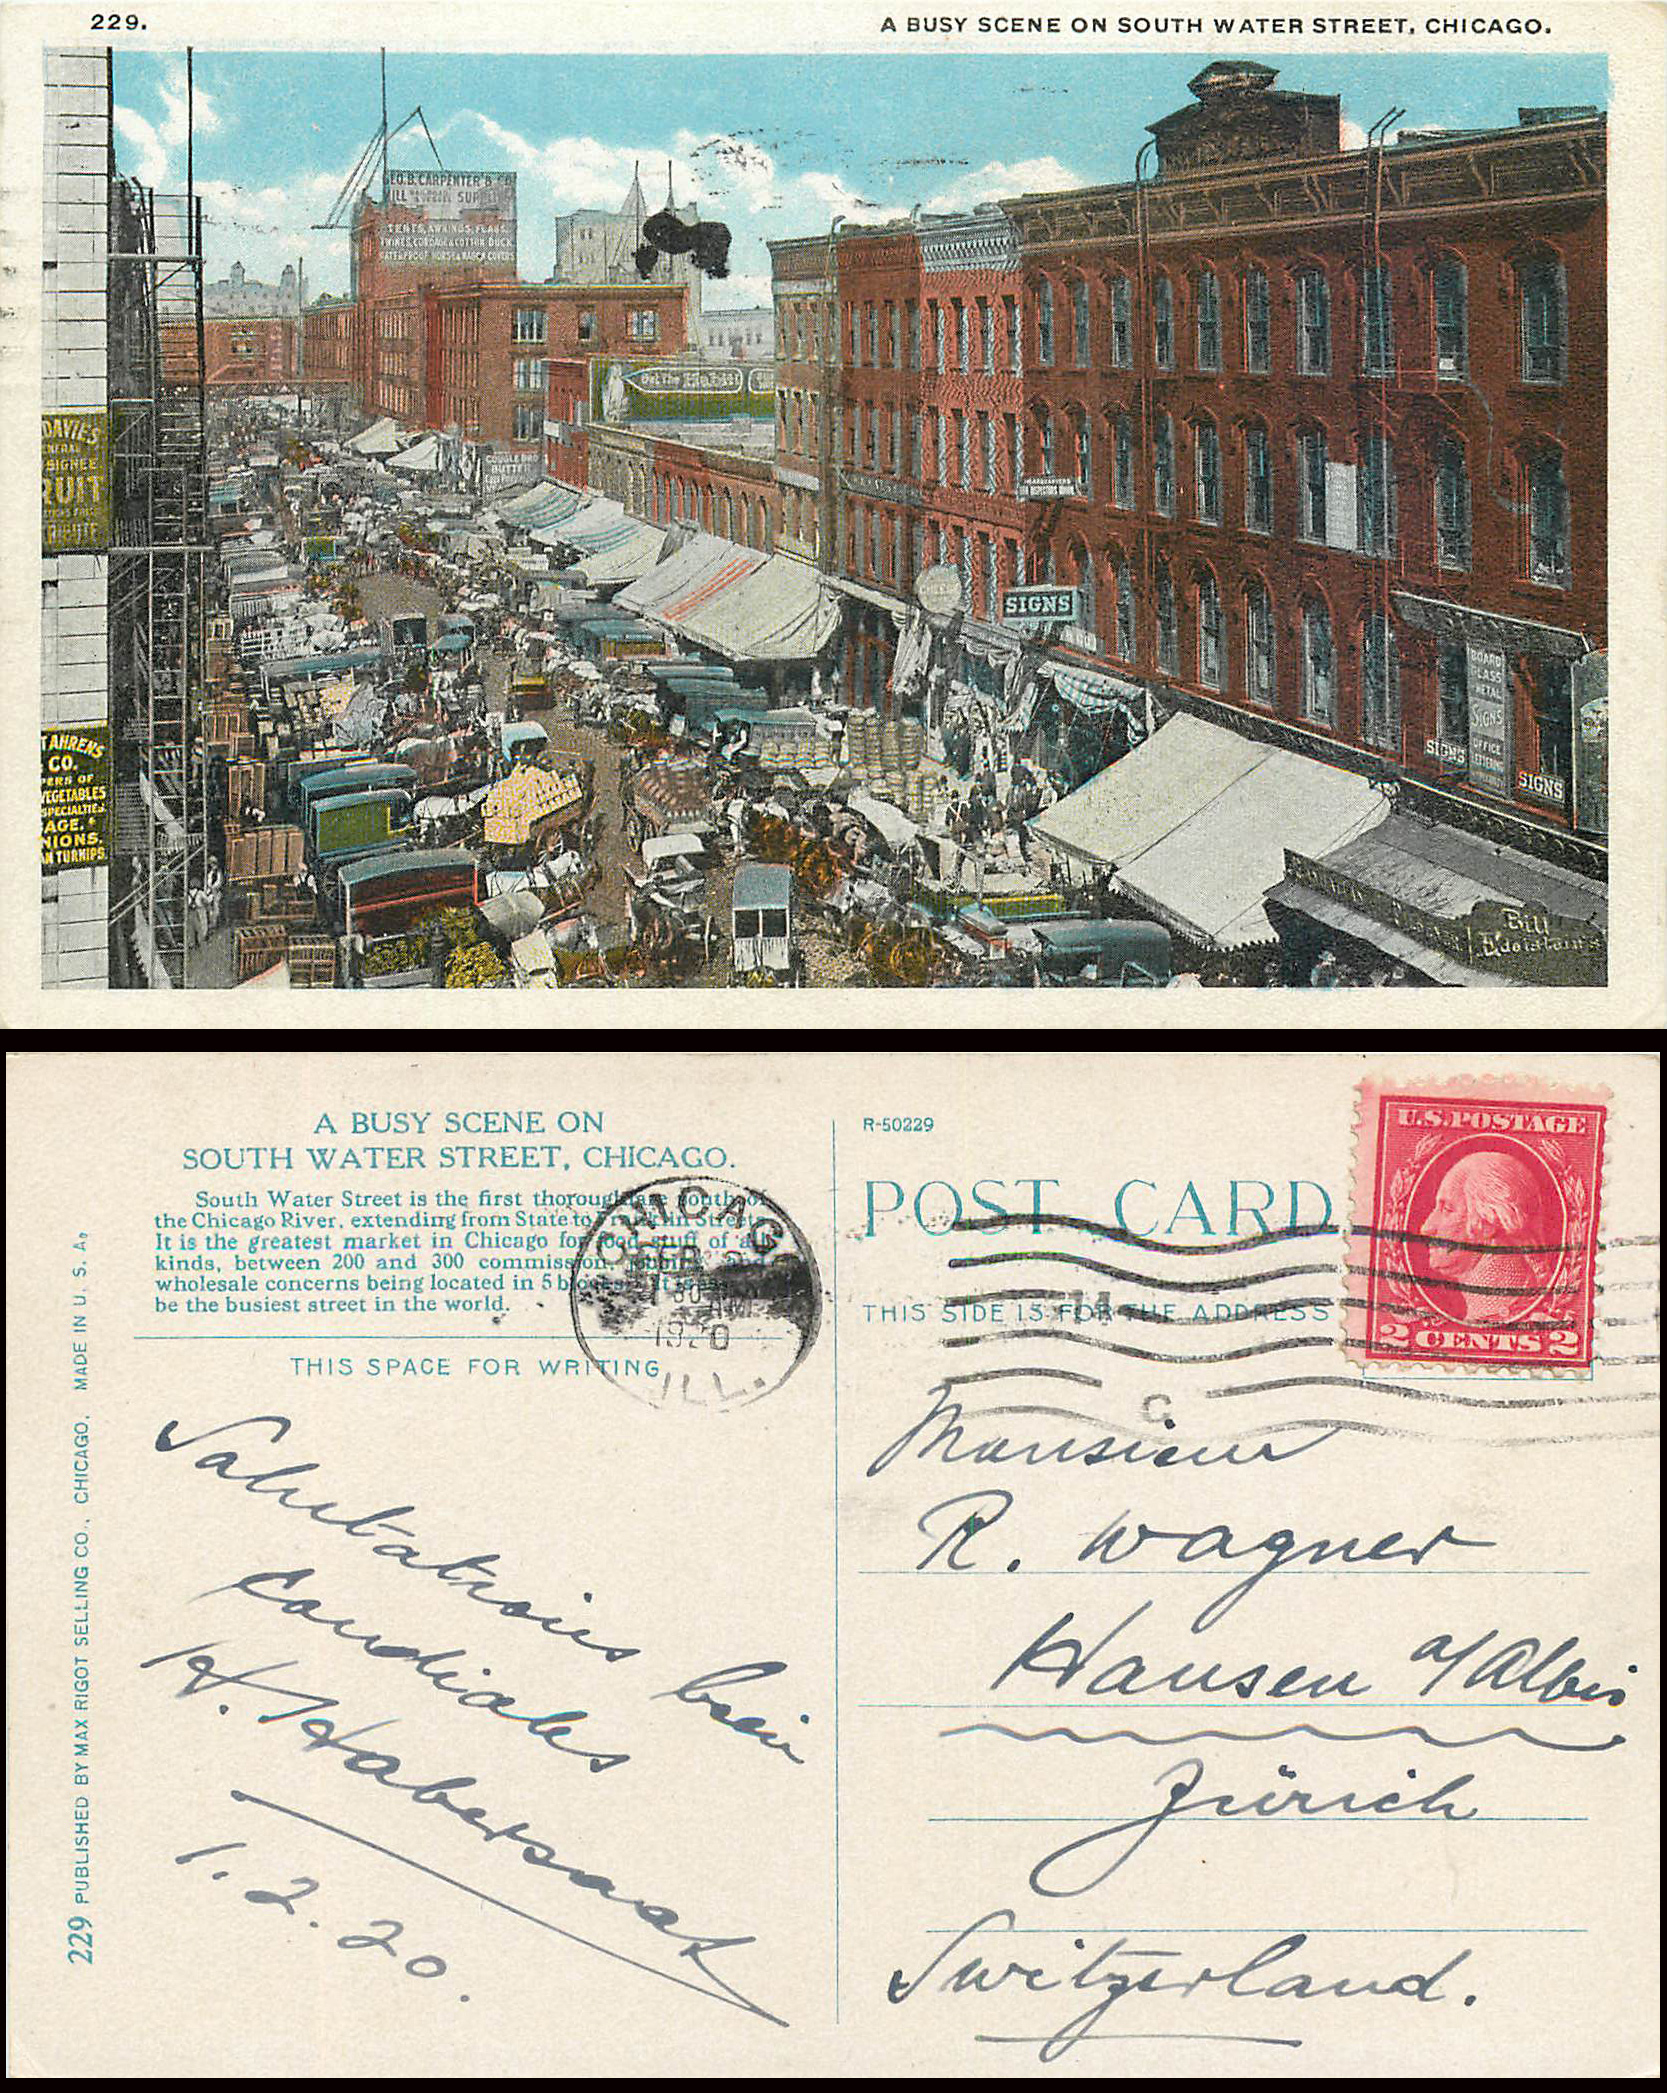 229.
A BUSY SCENE ON SOUTH WATER STREET, CHICAGO.
EO. B. CARPENTER & CO
SUP
TENTS, AWNINGS, FLAGS.
TWINES, CORDAGE & COTTON DUCK
DAVIES
SIGNEE.
RUIT
COUGLE BRO
BUTTER
Get The
HEADQUARTERS
CHEESE
SIGNS
BOARD
GLASS
METAL
SIGNS
OFFICE
LETTERING
SIGNS
SIGNS
T AHRENS
CO.
PERS OF
VEGETABLES
SPECIALTIES.
AGE,
NIONS.
N TURNIPS.
Bill
A BUSY SCENE ON
SOUTH WATER STREET, CHICAGO.
South Water Street is the first thoroughfare south of
the Chicago River, extending from State to Franklin Streets.
It is the greatest market in Chicago for food stuff of all
kinds, between 200 and 300 commission, jobbing and
wholesale concerns being located in 5 blocks. It is
be the busiest street in the world.
THIS SPACE FOR WRITING
CHICAGO
FEB 2
30
AM
1920
ILL.
R-50229
POST CARD
THIS SIDE IS FOR THE ADDRESS
U.S. POSTAGE
2 CENTS 2
C
229 PUBLISHED BY MAX RIGOT SELLING CO., CHICAGO. MADE IN U. S. A.
Salutations bien
cordiales
H. Habersaat
1. 2. 20.
Monsieur
R. Wagner
Hausen a/Albis
Zürich
Switzerland.